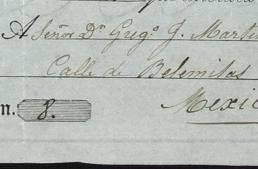 A Señor Dn. Grego. J. Martin
Calle de Belemitas
n. 8.
Mexic